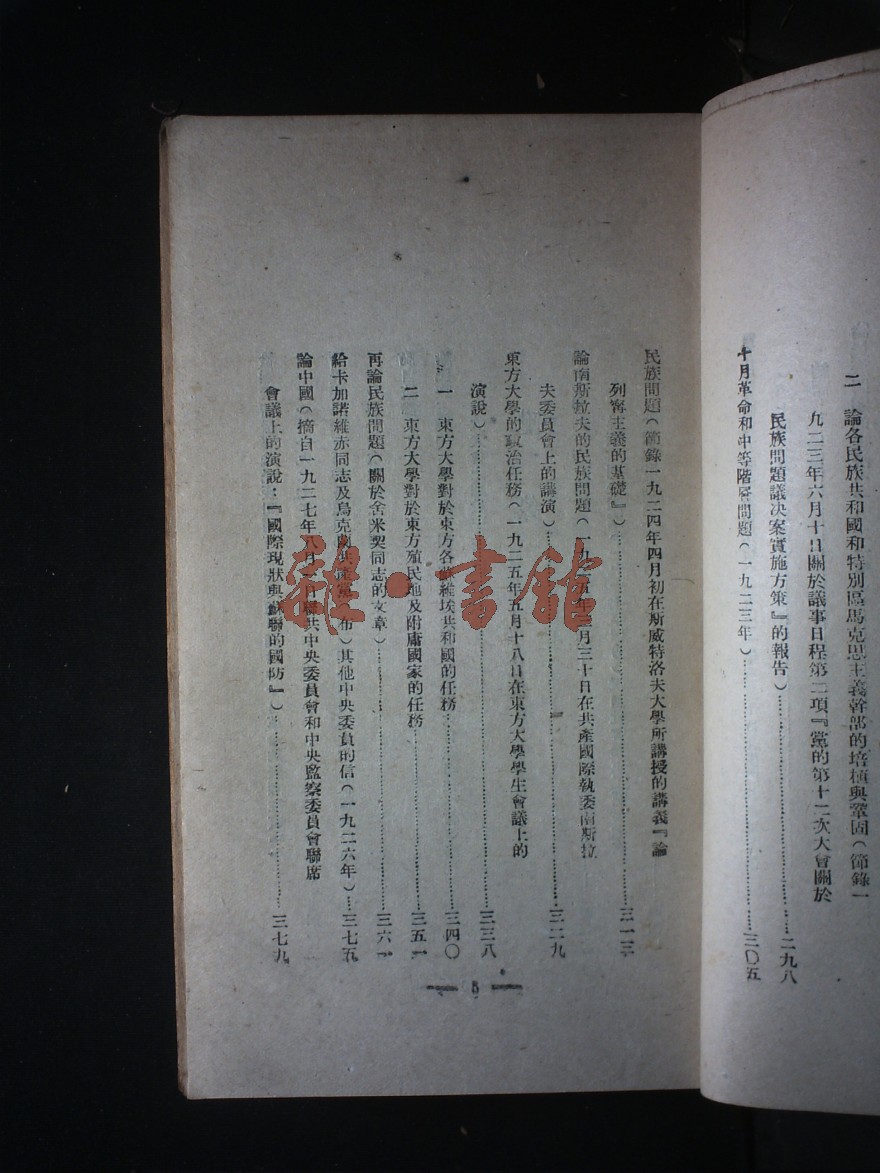 二　論各民族共和國和特別區馬克思主義幹部的培植與鞏固（節錄一
九二三年六月十日關於議事日程第二項『黨的第十二次大會關於
民族問題議決案實施方策』的報告）……二九八
十月革命和中等階層問題（一九二三年）……三〇五
民族問題（節錄一九二四年四月初在斯威特洛夫大學所講授的講義『論
列寧主義的基礎』）……三一三
論南斯拉夫的民族問題（一九二五年三月三十日在共產國際執委南斯拉
夫委員會上的講演）……三二九
東方大學的政治任務（一九二五年五月十八日在東方大學學生會議上的
演說）……三三八
一　東方大學對於東方各蘇維埃共和國的任務……三四〇
二　東方大學對於東方殖民地及附庸國家的任務……三五一
再論民族問題（關於舍米契同志的文章）……三六一
給卡加諾維赤同志及烏克蘭共產黨（布）其他中央委員的信（一九二六年）……三七五
論中國（摘自一九二七年八月一日聯共中央委員會和中央監察委員會聯席
會議上的演說：『國際現狀與蘇聯的國防』）……三七九
— 5 —
雜·書館